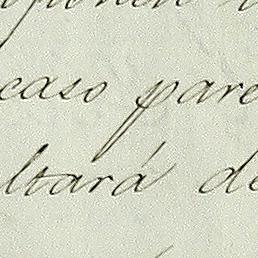 caso pare
ltará de